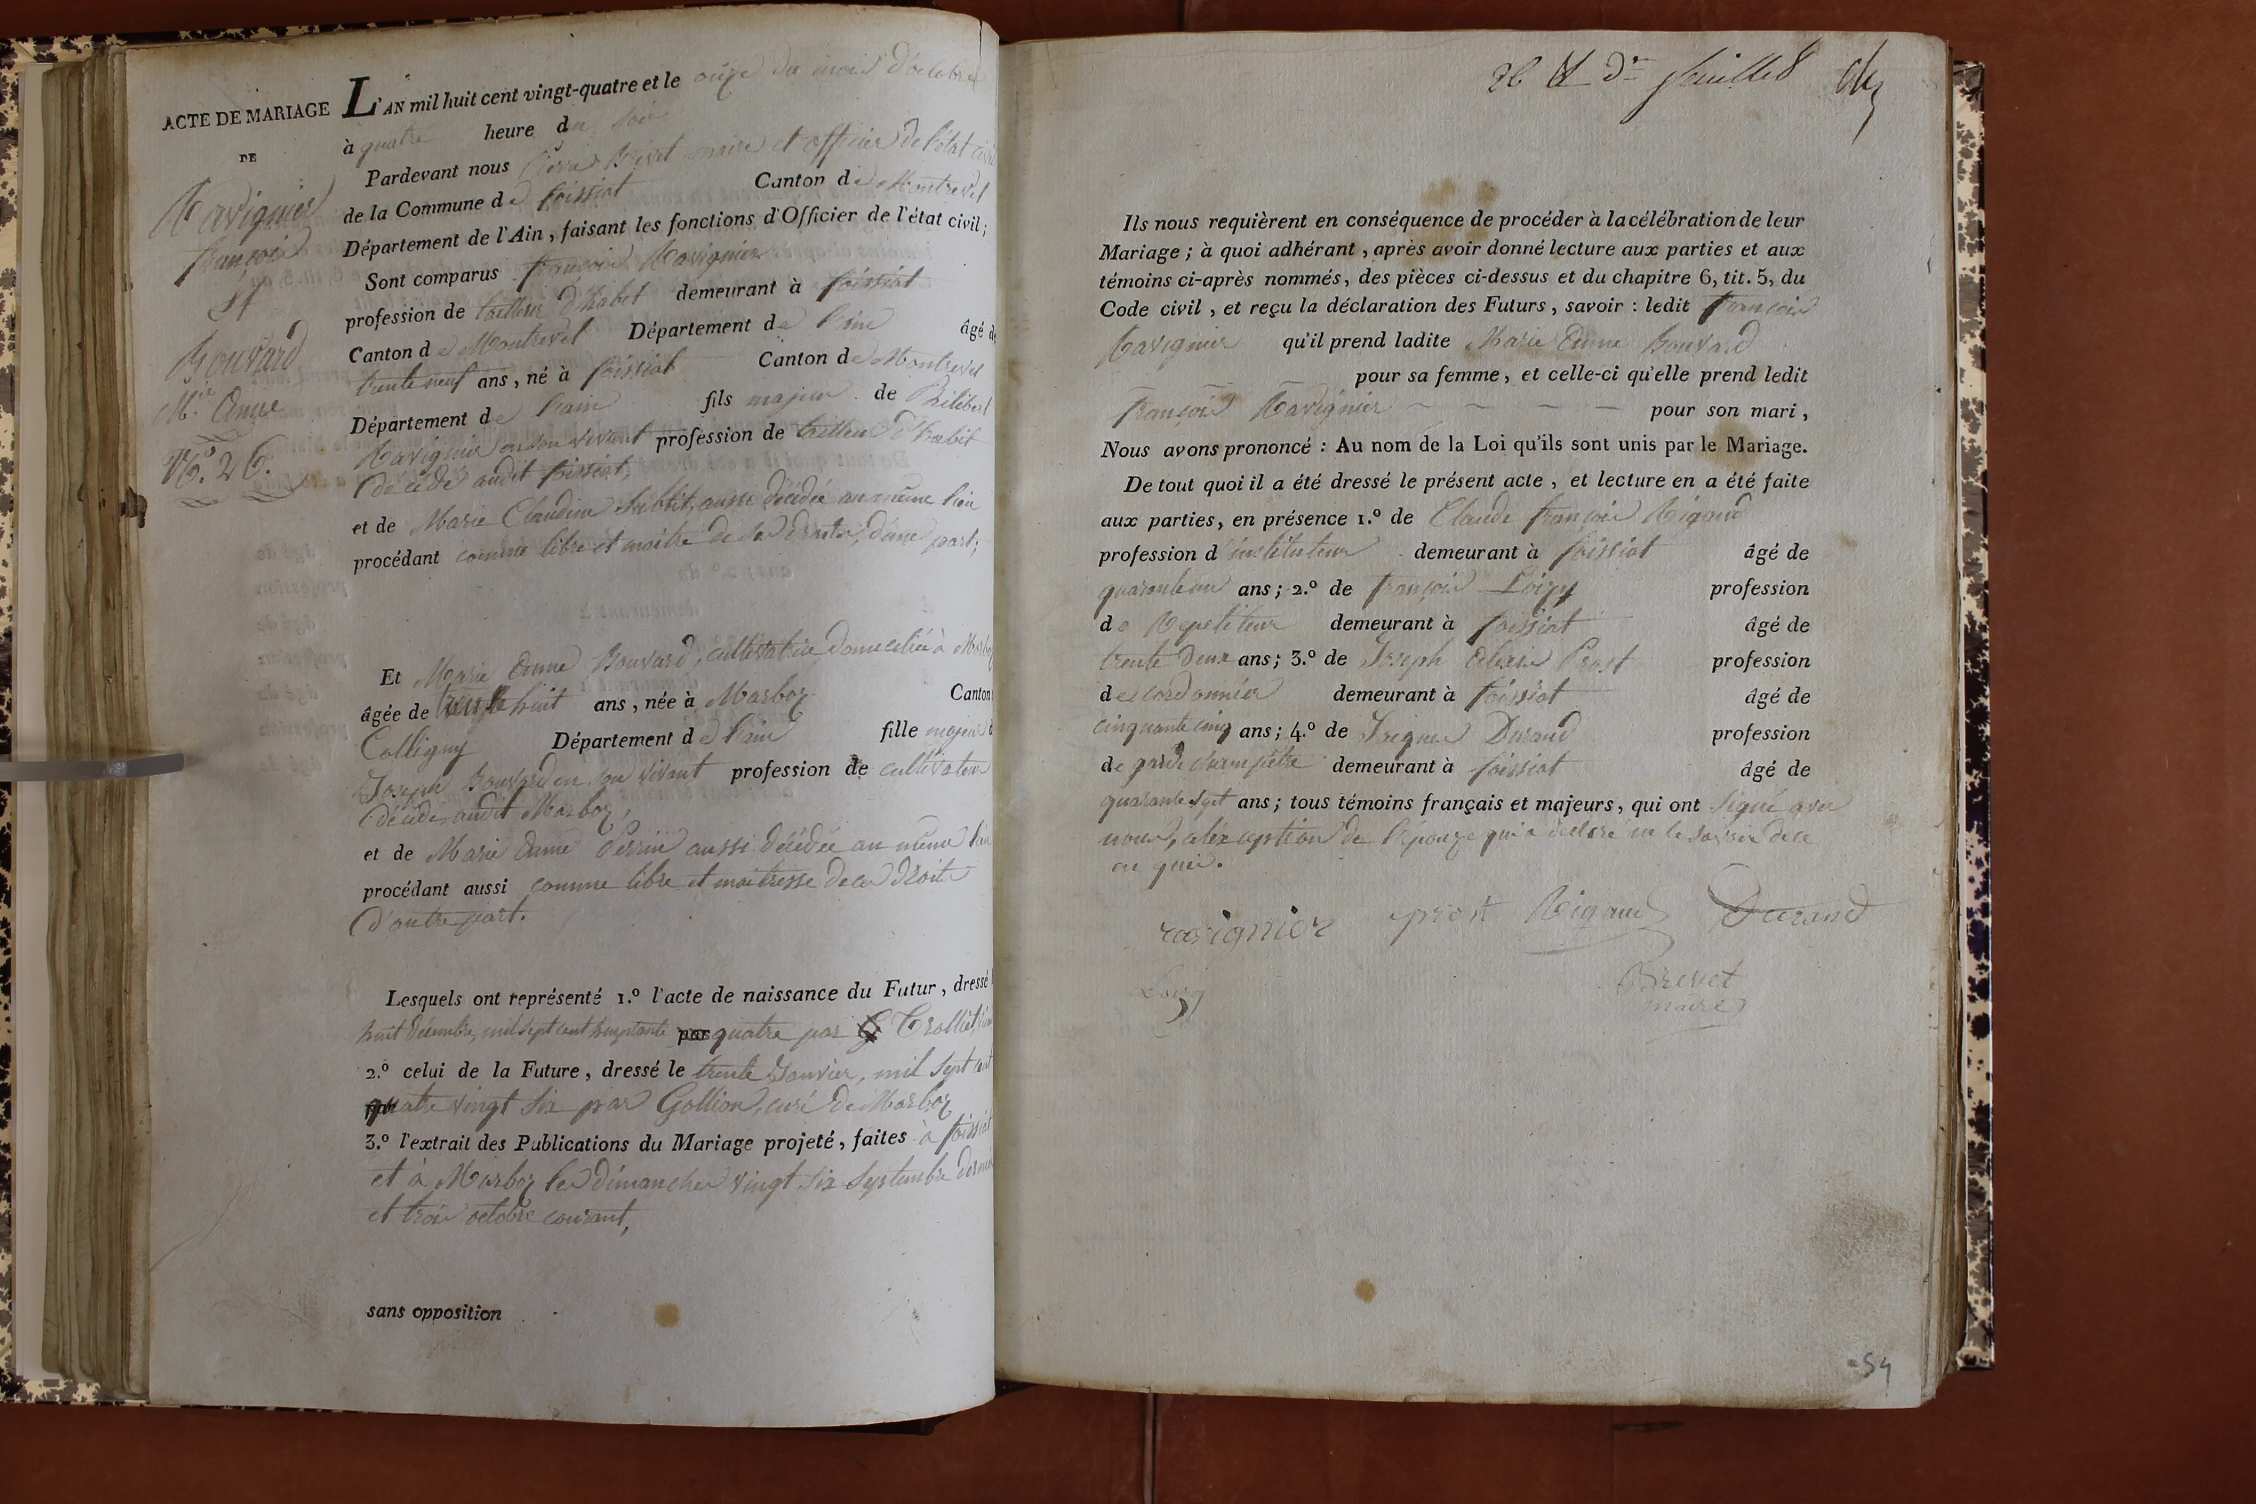 ACTE DE MARIAGE
DE
Ravignier
françois
et
Bouvard
M.ie Anne
N.o 26.
L'AN mil huit cent vingt-quatre et le onze du mois d'octobre
à quatre heure du soir
Pardevant nous Brevet maire et officier de l'état civil
de la Commune de foissiat Canton de Montrevel
Département de l'Ain, faisant les fonctions d'Officier de l'état civil;
Sont comparus françois Ravignier
profession de tailleur d'habit demeurant à foissiat
Canton de Montrevel Département de l'ain âgé de
trente neuf ans, né à foissiat Canton de Montrevel
Département de l'ain fils majeur de Philibert
Ravignier en son vivant profession de tailleur d'habit
décédé audit foissiat,
et de Marie Claudine aussi décédée au même lieu
procédant comme libre et maitre de ses droits, d'une part;
Et Marie Anne Bouvard, cultivatrice domiciliée à Marboz
âgée de trente huit ans, née à Marboz Canton
Colligny Département de l'ain fille majeure d
Joseph Bouvard en son vivant profession de cultivateur
décédé audit Marboz,
et de Marie Anne Perrin aussi décédée au même lieu
procédant aussi comme libre et maitresse de ses droits
d'autre part.
Lesquels ont représenté 1.o l'acte de naissance du Futur, dressé l
huit décembre, mil sept cent huiptante quatre par Trolliet
2.o celui de la Future, dressé le trente Janvier, mil sept cent
quatre vingt six par Gollion, curé de Marboz
3.o l'extrait des Publications du Mariage projeté, faites à foissiat
et à Marboz les dimanches vingt six septembre dernier
et trois octobre courant,
sans opposition
26 & d.er feuillet
Ils nous requièrent en conséquence de procéder à la célébration de leur
Mariage; à quoi adhérant, après avoir donné lecture aux parties et aux
témoins ci-après nommés, des pièces ci-dessus et du chapitre 6, tit. 5, du
Code civil, et reçu la déclaration des Futurs, savoir: ledit françois
Ravignier qu'il prend ladite Marie Anne Bouvard
pour sa femme, et celle-ci qu'elle prend ledit
françois Ravignier pour son mari,
Nous avons prononcé: Au nom de la Loi qu'ils sont unis par le Mariage.
De tout quoi il a été dressé le présent acte, et lecture en a été faite
aux parties, en présence 1.o de Claude françois Rigaud
profession d'instituteur demeurant à foissiat âgé de
quarante un ans; 2.o de françois Loisy profession
de Repetiteur demeurant à foissiat âgé de
trente deux ans; 3.o de Joseph Alexis Prost profession
de cordonnier demeurant à foissiat âgé de
cinquante cinq ans; 4.o de Durand profession
de garde champêtre demeurant à foissiat âgé de
quarante sept ans; tous témoins français et majeurs, qui ont signé avec
nous, à l'exception de l'épouze qui a declaré ne le savoir de ce
en quis.
ravignier prost Rigaud Durand
Loisy
Brevet
maire
54